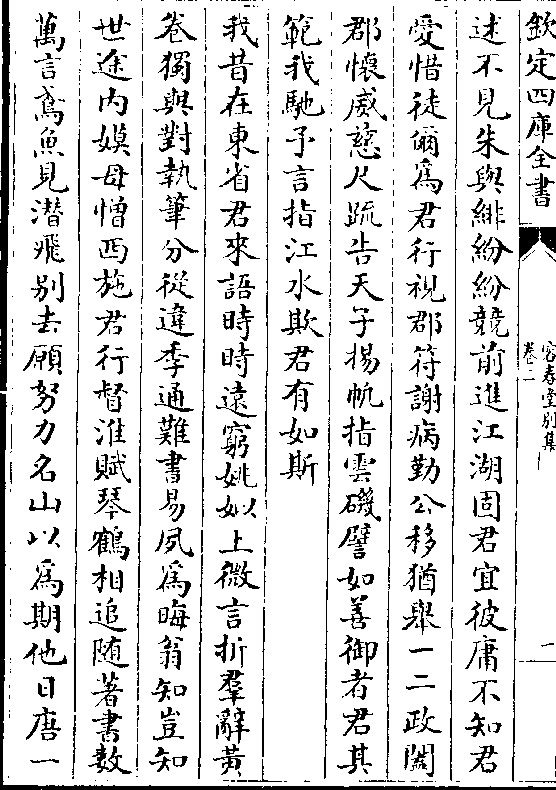 欽定四庫全書
容春堂別集
卷二
二
述不見朱與緋紛紛競前進江湖固君宜彼庸不知君
愛惜徒爾為君行視郡符謝病勤公移猶舉一二政闔
郡懷威慈尺疏告天子揚帆指雲磯譬如善御者君其
範我馳予言指江水欺君有如斯
我昔在東省君來語時時遠窮姚姒上微言折羣辭黃
卷獨與對執筆分從違季通難書易夙為晦翁知豈知
世途內嫫母憎西施君行督淮賦琴鶴相追随著書數
萬言鳶魚見潛飛别去願努力名山以為期他日唐一